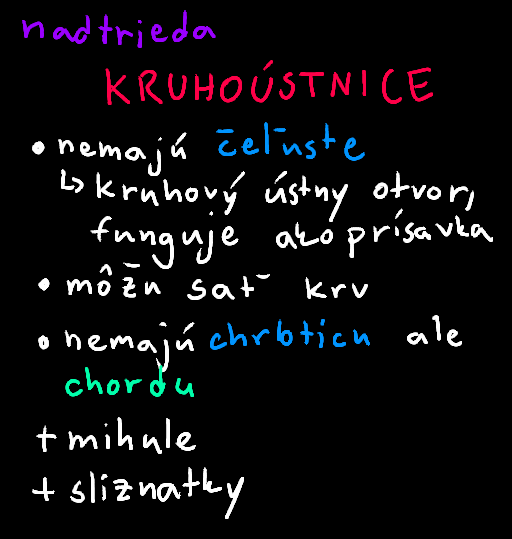 nadtrieda
KRUHOÚSTNICE
• nemajú čeľuste
↳ kruhový ústny otvor,
funguje ako prísavka
• môžu sať krv
• nemajú chrbticu ale
chordu
+ mihule
+ sliznatky